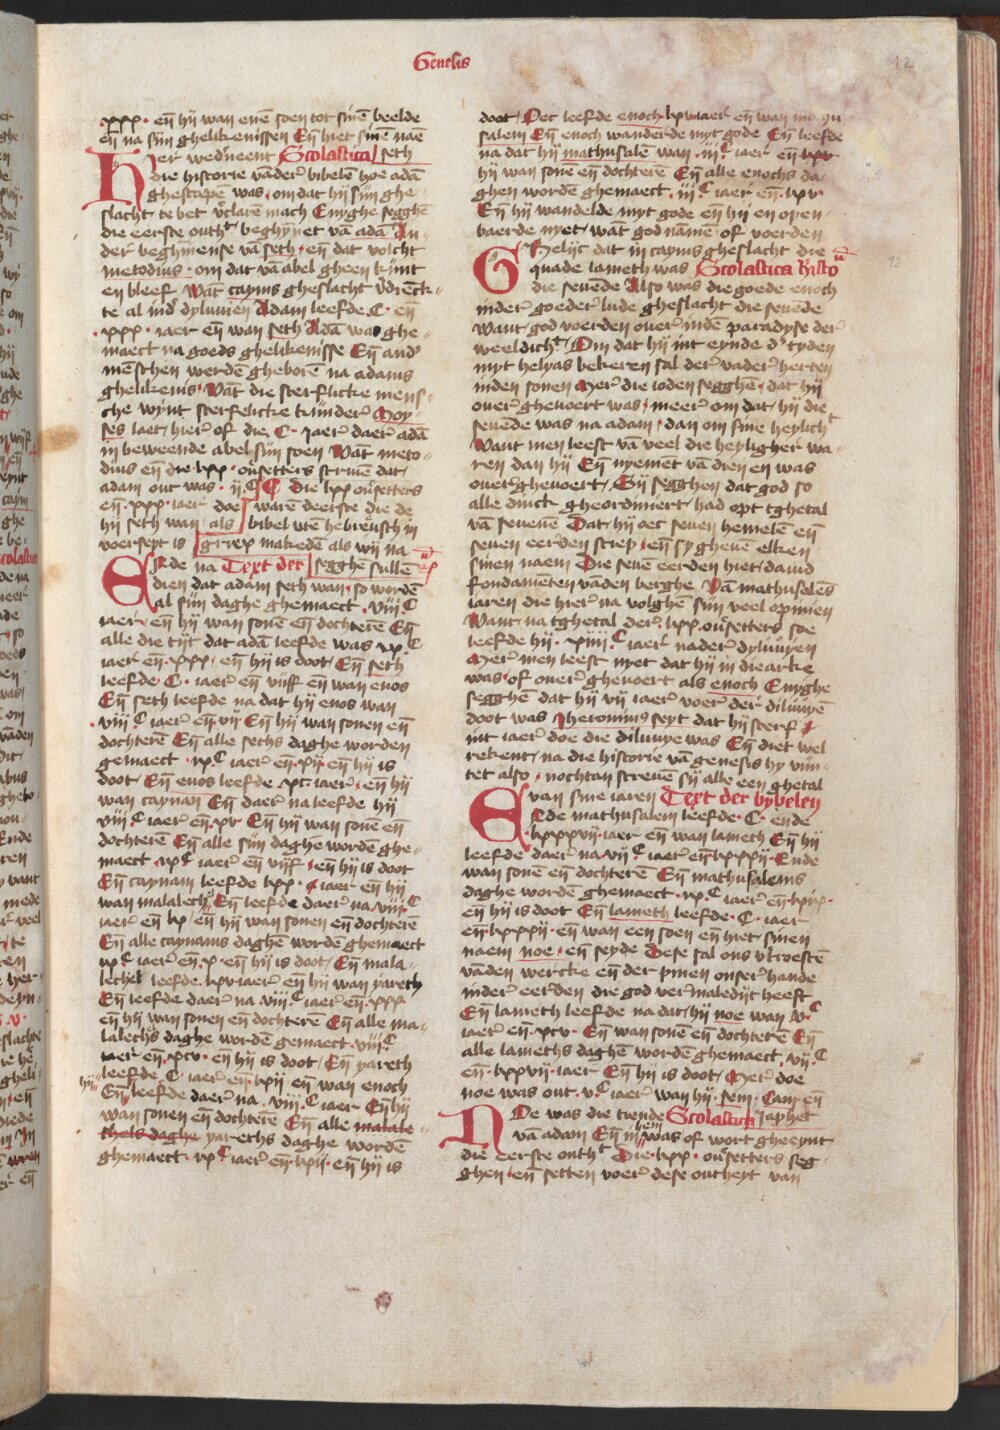 Genesis
12
xxx · en̄ hij wan enē soen tot sinē beelde
en̄ na sijn ghelikenissen En̄ hiet sinē nāe
Hier wed'neemt Scolastica seth
die historie vāder bibelen hoe adā
ghescapē was · om dat hij sijn ghe
slacht te bet v'claren mach Enighe segghē
die eerste outh't beghynet vā adā In
der beghinense vā seth · en̄ dat volcht
metodius · om dat vā abel gheen kijnt
en bleef Wāt cayns gheslacht v'drenck
te al ind' dyluuien Adam leefde · C · en̄
· xxx · iaer en̄ wan seth Adā was ghe
maect na goeds ghelikenisse En̄ and'
menschen werdē gheborē na adams
ghelikenis · Wāt die sterflicke mens
che wynt sterfelicke kijnder Moy
ses laet hier of die · C · Jaer daer adā
in beweende abel sijn soen Wāt meto
dius en̄ die · lxx · ou'setters scriuē dat
adam out was · ij · C · die lxx ou'setters
en̄ · xxx · iaer doe ware deerste die de
hij seth wan · als bibel wtē hebreusch in
voerseyt is griex makedē als wij na
Ende na Text der segghē sullē
dien dat adam seth wan · so wordē
al sijn daghe ghemaect · viij · C
iaer · en̄ hij wan sonē en̄ dochterē En̄
alle die tijt dat adā leefde was ix · C
iaer en̄ · xxx · en̄ hij is doot · En̄ seth
leefde · C · iaer en̄ vijff en̄ wan enos
En̄ seth leefde na dat hij enos wan
· viij · C iaer en̄ · vij En̄ hij wan sonen en̄
dochterē En̄ alle seths daghe worden
gemaect · ix · C iaer en̄ · xij · en̄ hij is
doot · En̄ enos leefde · xc · iaer · en̄ hij
wan caynan En̄ daer na leefde hij
viij · C iaer en̄ · xv En̄ hij wan sonē en̄
dochterē En̄ alle sijn daghe wordē ghe
maect · ix · C iaer en̄ vijf · en̄ hij is doot
En̄ caynam leefde lxx · iaer en̄ hij
wan malalech En̄ leefde daer na · viij · C
iaer en̄ · xl · en̄ hij wan sonen en̄ dochterē
En̄ alle caynams daghē wordē ghemaect
ix · C iaer en̄ · x · en̄ hij is doot · En̄ mala
lechel leefde · lxv · iaer en̄ hij wan yareth
En̄ leefde daer na · viij · C iaer en̄ · xxx
en̄ hij wan sonen en̄ dochterē En̄ alle ma
lalechs daghe wordē gemaect · viij · C
iaer en̄ · xcv · en̄ hij is doot · En̄ yareth
leefde · C · iaer en̄ · lxij en̄ wan enoch
hij En̄ leefde daer na · viij · C iaer En̄ hij
wan sonen en̄ dochterē En̄ alle malale
thels daghe yareths daghe wordē
ghemaect · ix · C iaer en̄ · lxij · en̄ hij is
doot · Oec leefde enoch lxv iaer en̄ wan
salem En̄ enoch wanderde myt gode En̄ leefde
na dat hij mathusalē wan · iij · C iaer en̄ lxv
hij wan sonē en̄ dochterē En̄ alle enochs da
ghen wordē ghemaect · iij · C iaer en̄ · lxv
En̄ hij wandelde myt gode en̄ hij en open
baerde nyet · wāt god nāmē of voerden
Ghelijc dat in cayns gheslacht die
quade lameth was Scolastica histo
die seuēde Also was die goede enoch
inder goeder lude gheslacht die seuēde
Want god voerden ouer inde paradyse der
weeldich't · Om dat hij int eynde d' tyden
myt helyas bekeren sal der vader herten
inden sonen Mer die ioden segghē · dat hij
ouer gheuoert was · meer om dat hij die
seuēde was na adam · dan om sine heylich't
Want men leest vā veel die heyligher wa
ren dan hij En̄ nyement vā dien en was
ouer gheuoert · En̄ segghen dat god so
alle dinck gheordiniert had opt tghetal
vā seuenē Dat hij oec seuen hemelē en̄
seuen eerden sciep · en̄ sy gheuē elken
sinen naem Die seuē eerden hiet dauid
fondamētē vāden berghe Vā mathusalēs
iaren die hier na volghē sijn veel opinien
Want na tghetal der lxx ou'setters soe
leefde hij · xiiij · C iaer nader dyluuyen
Mer men leest nyet dat hij in die arke
was · of ouer gheuoert als enoch Enighe
segghē dat hij vij iaer voer der diluuyē
doot was Jheronimus seyt dat hij sterf
int iaer doe die diluuye was En̄ diet wel
rekent · na die historie vā genesis hy vijn
tet also · nochtan screuen sij alle een ghetal
van sine iaren Text der bybelen
Ende mathusalem leefde · C · ende
· lxxxvij · iaer en̄ wan lameth En̄ hij
leefde daer na · vij · C iaer en̄ lxxxij · Ende
wan sonē en̄ dochterē En̄ mathusalems
daghe wordē ghemaect · ix · C iaer en̄ · lxix ·
en̄ hij is doot En̄ lameth leefde · C · iaer
en̄ · lxxxij · en̄ wan een soen en̄ hiet sinen
naem noe · en̄ seyde Dese sal ons v'troestē
vāden wercke en̄ der pinen onser hande
inder eerden die god vermaledijt heeft
En̄ lameth leefde na dat hij noe wan v · C
iaer en̄ · xcv · En̄ wan sonē en̄ dochterē En̄
alle lameths daghē wordē ghemaect · vij · C
en̄ · lxxvij · iaer En̄ hij is doot · Mer doe
noe was out · v · C iaer wan hij · sem · Cam en̄
Noe was die tiende Scolastica Japhet
vā adam En̄ in hem was of wort gheeynt
die eerste outh't Die · lxx · ou'setters seg
ghen · en̄ setten voer dese outheyt van